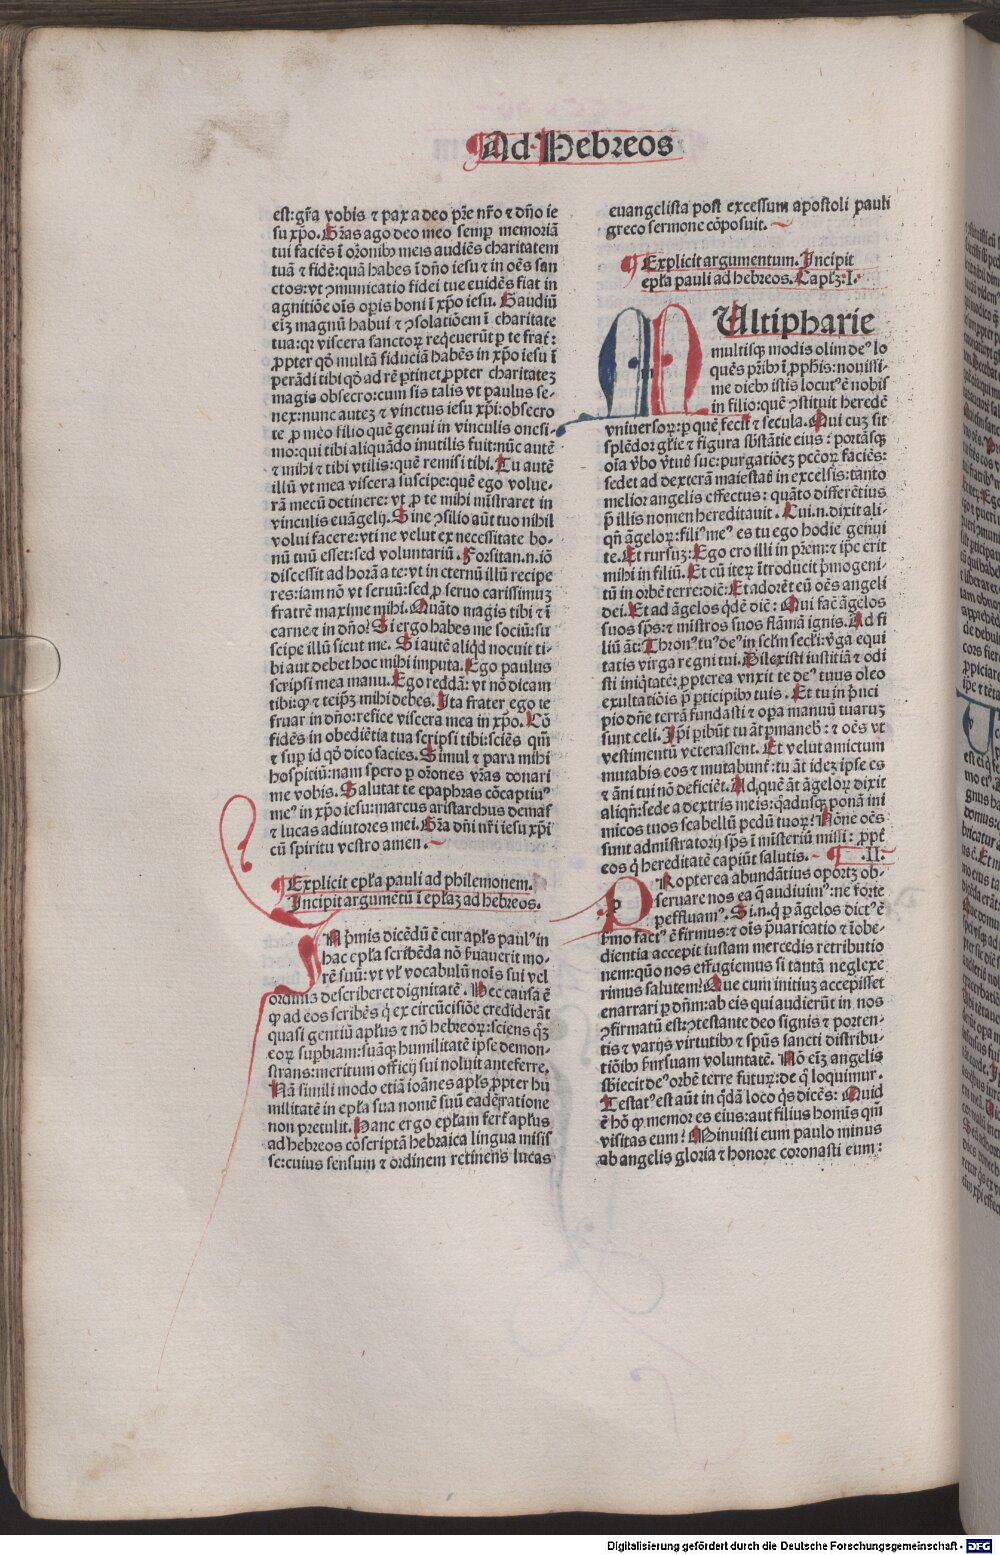 Ad Hebreos
est: gr̄a vobis ⁊ pax a deo pr̄e nr̄o ⁊ dn̄o ie
su xp̄o. Gr̄as ago deo meo semꝑ memoriā
tui faciēs ī or̄onibꝰ meis audiēs charitatem
tuā ⁊ fidē: quā habes ī dn̄o iesu ⁊ in oēs san
ctos: vt ꝯmunicatio fidei tue euidēs fiat in
agnitiōe oīs oꝑis boni ī xp̄o iesu. Gaudiū
eiꝫ magnū habui ⁊ ꝯsolatiōem ī charitate
tua: qꝛ viscera sanctoꝝ reqͥeuerūt ꝑ te frat̄:
ꝓpter qd̄ multā fiduciā habēs in xp̄o iesu ī
perādi tibi qd̄ ad rē ꝑtinet ꝓpter charitateꝫ
magis obsecro: cum sis talis vt paulus se-
nex: nunc auteꝫ ⁊ vinctus iesu xp̄i: obsecro
te ꝓ meo filio quē genui in vinculis onesi-
mo: qui tibi aliquādo inutilis fuit: nūc autē
⁊ mihi ⁊ tibi vtilis: quē remisi tibi. Tu autē
illū vt mea viscera suscipe: quē ego volue-
rā mecū detinere: vt ꝓ te mihi mīstraret in
vinculis euāgelij. Sine ꝯsilio aūt tuo nihil
volui facere: vti ne velut ex necessitate bo-
nū tuū esset: sed voluntariū. Forsitan .n. iō
discessit ad horā a te: vt in eternū illū recipe
res: iam nō vt seruū: sed ꝓ seruo carissimuꝫ
fratrē maxime mihi. Quāto magis tibi ⁊ ī
carne ⁊ in dn̄o? Si ergo habes me sociū: su
scipe illū sicut me. Si autē aliqͥd nocuit ti-
bi aut debet hoc mihi imputa. Ego paulus
scripsi mea manu. Ego reddā: vt nō dicam
tibi: ꝙ ⁊ teipꝫ mihi debes. Ita frater ego te
fruar in dn̄o: refice viscera mea in xp̄o. Cō
fidēs in obediētia tua scripsi tibi: sciēs qm̄
⁊ suꝑ id qd̄ dico facies. Simul ⁊ para mihi
hospitiū: nam spero ꝑ or̄ones vr̄as donari
me vobis. Salutat te epaphras cōcaptiuꝰ
meꝰ in xp̄o iesu: marcus aristarchus demas
⁊ lucas adiutores mei. Gr̄a dn̄i nr̄i iesu xp̄i
cū spiritu vestro amen.
Explicit epl̄a pauli ad philemonem.
Incipit argumētū ī epl̄aꝫ ad hebreos.
IN pͥmis dicēdū ē cur apl̄s paulꝰ in
hac epl̄a scribēda nō ẜuauerit mo-
rē suū: vt vl̓ vocabulū nōis sui vel
ordinis describeret dignitatē. Hec causa ē
ꝙ ad eos scribēs qͥ ex circūcisiōe crediderāt
quasi gentiū apl̄us ⁊ nō hebreoꝝ: sciens qꝫ
eoꝝ suꝑbiam: suāꝙ humilitatē ipse demon-
strans: meritum officij sui noluit anteferre.
Nā simili modo etiā ioānes apl̄s ꝓpter hu
militatē in epl̄a sua nomē suū eadē ratione
non pretulit. Hanc ergo epl̄am fert̄ apl̄us
ad hebreos cōscriptā hebraica lingua misis
se: cuius sensum ⁊ ordinem retinens lucas
euangelista post excessum apostoli pauli
greco sermone cōposuit.
Explicit argumentum. Incipit
epl̄a pauli ad hebreos. Capl̄ꝫ .I.
MUltipharie
multisꝙ modis olim deꝰ lo
quēs pr̄ibꝰ ī ꝓph̄is: nouissi-
me diebꝰ istis locutꝰ ē nobis
in filio: quē ꝯstituit heredē
vniuersoꝝ: ꝑ quē fecit ⁊ secula. Qui cuꝫ sit
splēdor gl̄ie ⁊ figura sb̄stātie eius: portāsꝙ
oīa v̓bo v̓tutꝭ sue: purgatiōeꝫ pcc̄oꝝ faciēs:
sedet ad dexterā maiestatꝭ in excelsis: tanto
melior angelis effectus: quāto differētius
p̄ illis nomen hereditauit. Cui .n. dixit ali-
qn̄ āgeloꝝ: filiꝰ meꝰ es tu ego hodie genui
te. Et rursuꝫ: Ego ero illi in pr̄em: ⁊ ip̄e erit
mihi in filiū. Et cū iteꝝ ītroducit pͥmogeni-
tū in orbē terre: dic̄: Et adorēt eū oēs angeli
dei. Et ad āgelos qͥdē dic̄: Qui fac̄ āgelos
suos sp̄s: ⁊ mīstros suos flāmā ignis. Ad fi
liū āt: Thronꝰ tuꝰ deꝰ in scl̄m secl̄i: v̓ga equi
tatis virga regni tui. Dilexisti iustitiā ⁊ odi
sti iniqͥtatē: ꝓpterea vnxit te deꝰ tuus oleo
exultatiōis p̄ ꝑticipibꝰ tuis. Et tu in pͥnci
pio dn̄e terrā fundasti ⁊ oꝑa manuū tuaruꝫ
sunt celi. Ip̄i ꝑibūt tu āt ꝑmaneb̄: ⁊ oēs vt
vestimentū veterascent. Et velut amictum
mutabis eos ⁊ mutabunt̄: tu āt ideꝫ ipse es
⁊ āni tui nō deficiēt. Ad quē āt āgeloꝝ dixit
aliqn̄: sede a dextris meis: qͦadusꝙ ponā ini
micos tuos scabellū pedū tuoꝝ? Nōne oēs
sunt admīstratorij sp̄s ī mīsteriū missi: ꝓpt̄
eos qͥ hereditatē capiūt salutis. .II.
PRopterea abundātius oportꝫ ob-
seruare nos ea qͣ audiuimꝰ: ne forte
ꝑeffluamꝰ. Si .n. qͥ ꝑ āgelos dictꝰ ē
ẜmo factꝰ ē firmus: ⁊ oīs p̄uaricatio ⁊ īobe-
dientia accepit iustam mercedis retributio
nem: quō nos effugiemus si tantā neglexe
rimus salutem? Que cum initiuꝫ accepisset
enarrari ꝑ dn̄m: ab eis qui audierūt in nos
ꝯfirmatū est: ꝯtestante deo signis ⁊ porten-
tis ⁊ varijs virtutibꝰ ⁊ sp̄us sancti distribu-
tiōibꝰ ẜm suam voluntatē. Nō eiꝫ angelis
sb̄iecit deꝰ orbē terre futuꝝ: de qͦ loquimur.
Testatꝰ est aūt in qͦdā loco qͥs dicēs: Quid
ē hō ꝙ memor es eius: aut filius homīs qm̄
visitas eum? Minuisti eum paulo minus
ab angelis gloria ⁊ honore coronasti eum:
Digitalisierung gefördert durch die Deutsche Forschungsgemeinschaft - DFG